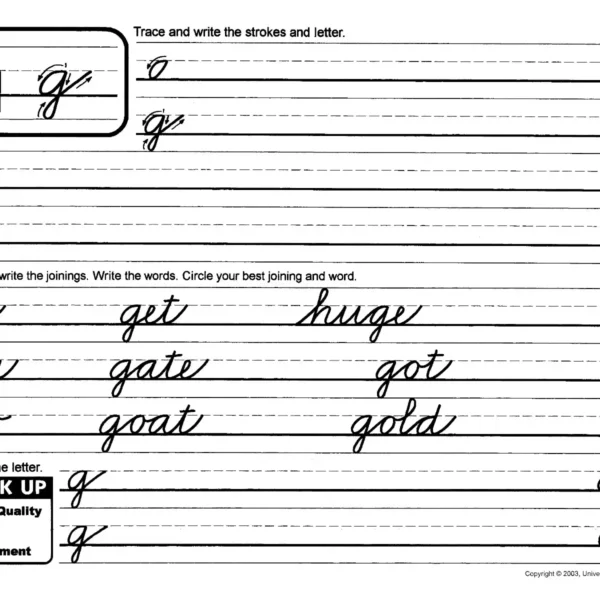 Trace and write the strokes and letter.
g
o
g
write the joinings. Write the words. Circle your best joining and word.
get huge
gate got
goat gold
letter.
g
UP
Quality
g
Copyright © 2003,